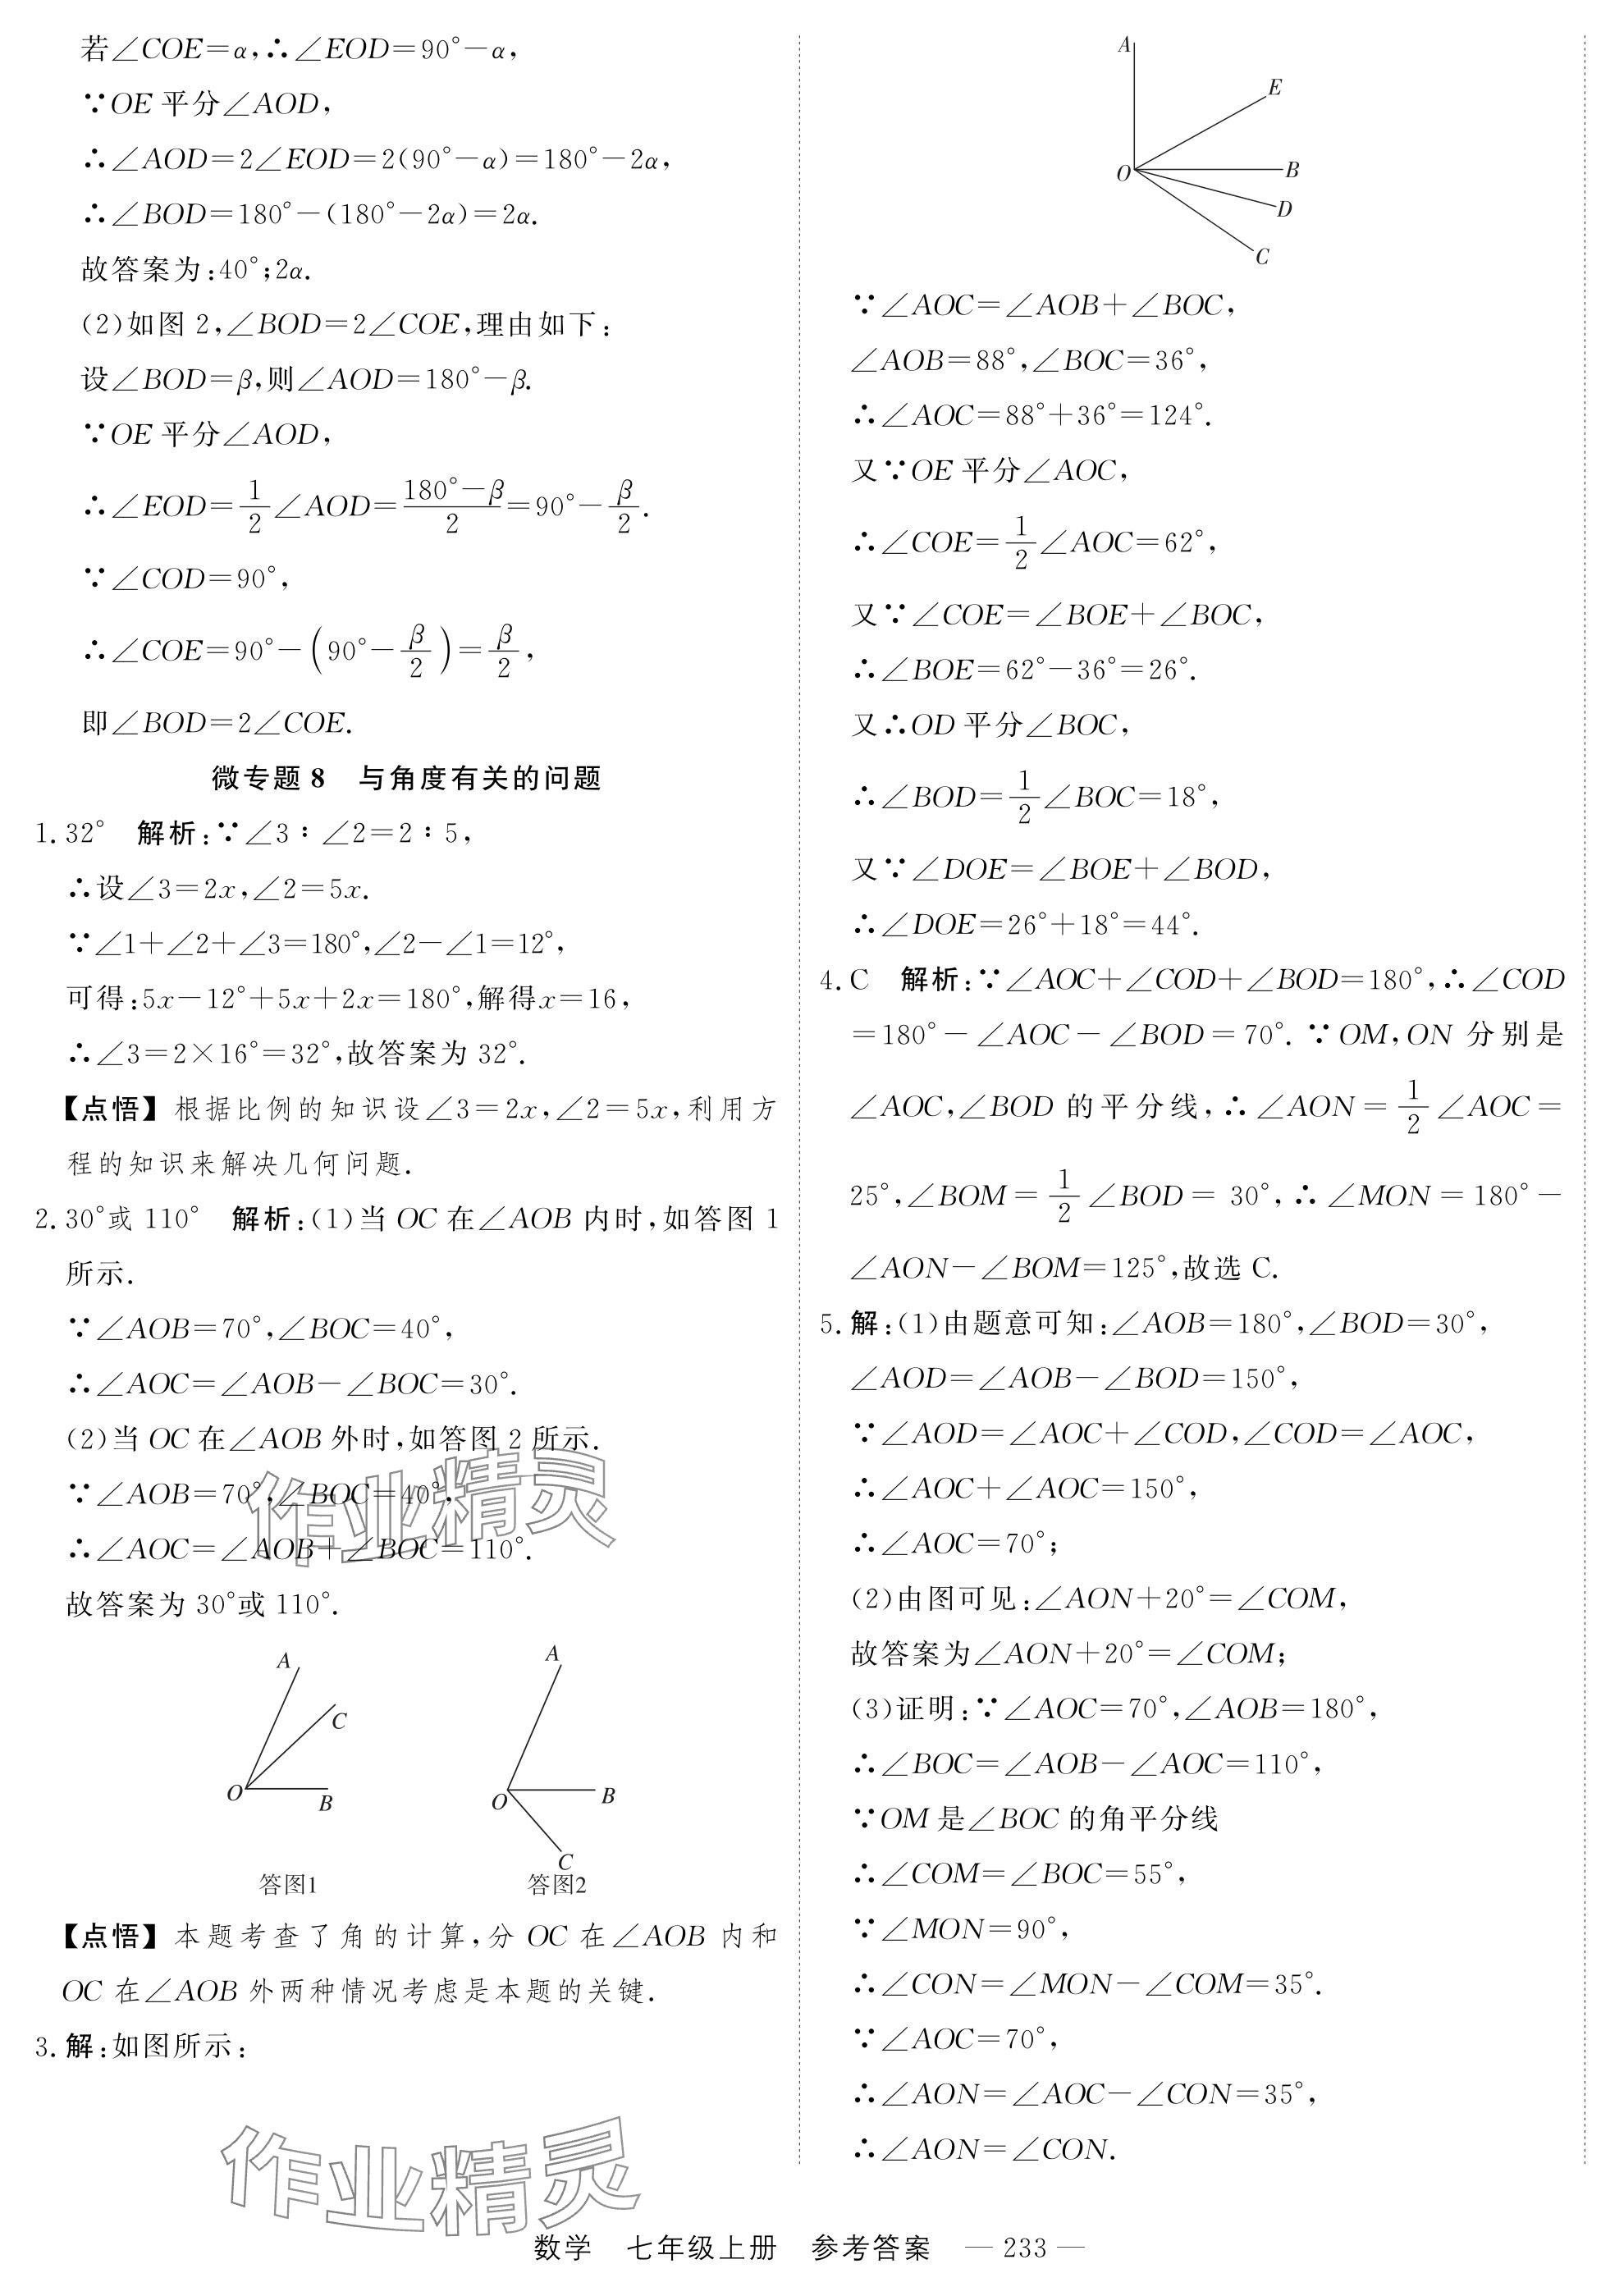 若∠COE=α,∴∠EOD=90°-α,
∵OE 平分∠AOD,
∴∠AOD=2∠EOD=2(90°-α)=180°-2α,
∴∠BOD=180°-(180°-2α)=2α.
故答案为:40°;2α.
(2)如图 2,∠BOD=2∠COE,理由如下:
设∠BOD=β,则∠AOD=180°-β.
∵OE 平分∠AOD,
∴∠EOD=1/2∠AOD=(180°-β)/2=90°-β/2.
∵∠COD=90°,
∴∠COE=90°-(90°-β/2)=β/2,
即∠BOD=2∠COE.
微专题 8 与角度有关的问题
1. 32° 解析:∵∠3∶∠2=2∶5,
∴设∠3=2x,∠2=5x.
∵∠1+∠2+∠3=180°,∠2-∠1=12°,
可得:5x-12°+5x+2x=180°,解得x=16,
∴∠3=2×16°=32°,故答案为 32°.
【点悟】根据比例的知识设∠3=2x,∠2=5x,利用方
程的知识来解决几何问题.
2. 30°或 110° 解析:(1)当 OC 在∠AOB 内时,如答图 1
所示.
∵∠AOB=70°,∠BOC=40°,
∴∠AOC=∠AOB-∠BOC=30°.
(2)当 OC 在∠AOB 外时,如答图 2 所示.
∵∠AOB=70°,∠BOC=40°,
∴∠AOC=∠AOB+∠BOC=110°.
故答案为 30°或 110°.
A
C
O
B
答图1
A
O
B
C
答图2
【点悟】本题考查了角的计算,分 OC 在∠AOB 内和
OC 在∠AOB 外两种情况考虑是本题的关键.
3. 解:如图所示:
A
E
O
B
D
C
∵∠AOC=∠AOB+∠BOC,
∠AOB=88°,∠BOC=36°,
∴∠AOC=88°+36°=124°.
又∵OE 平分∠AOC,
∴∠COE=1/2∠AOC=62°,
又∵∠COE=∠BOE+∠BOC,
∴∠BOE=62°-36°=26°.
又∴OD 平分∠BOC,
∴∠BOD=1/2∠BOC=18°,
又∵∠DOE=∠BOE+∠BOD,
∴∠DOE=26°+18°=44°.
4. C 解析:∵∠AOC+∠COD+∠BOD=180°,∴∠COD
=180°-∠AOC-∠BOD=70°. ∵OM,ON 分别是
∠AOC,∠BOD 的平分线,∴∠AON=1/2∠AOC=
25°,∠BOM=1/2∠BOD= 30°,∴∠MON=180°-
∠AON-∠BOM=125°,故选 C.
5. 解:(1)由题意可知:∠AOB=180°,∠BOD=30°,
∠AOD=∠AOB-∠BOD=150°,
∵∠AOD=∠AOC+∠COD,∠COD=∠AOC,
∴∠AOC+∠AOC=150°,
∴∠AOC=70°;
(2)由图可见:∠AON+20°=∠COM,
故答案为∠AON+20°=∠COM;
(3)证明:∵∠AOC=70°,∠AOB=180°,
∴∠BOC=∠AOB-∠AOC=110°,
∵OM 是∠BOC 的角平分线
∴∠COM=∠BOC=55°,
∵∠MON=90°,
∴∠CON=∠MON-∠COM=35°.
∵∠AOC=70°,
∴∠AON=∠AOC-∠CON=35°,
∴∠AON=∠CON.
作业精灵
作业精灵
数学 七年级上册 参考答案 — 233 —